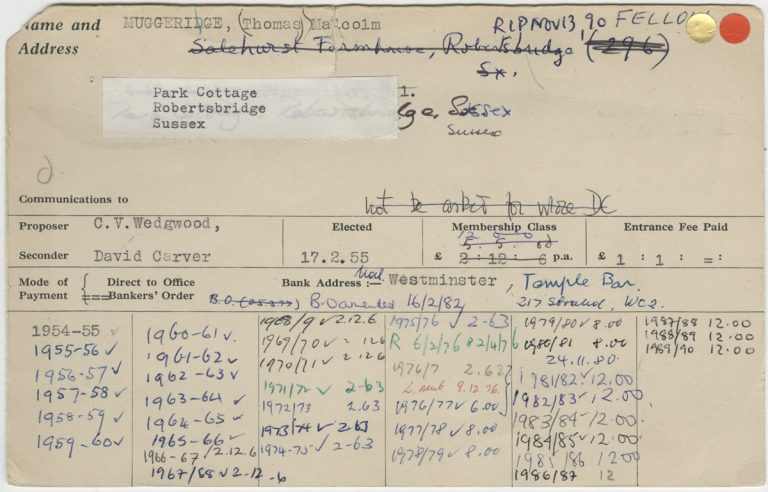 Name and MUGGERIDGE, (Thomas) Malcolm RIP NOV 13, 90 FELLOW
Address Salehurst Farmhouse, Robertsbridge (296)
Sx.
Park Cottage 1.
Robertsbridge ge, Sussex
Sussex Sussex
Communications to not be asked for more DC
Proposer C.V.Wedgwood, Elected Membership Class Entrance Fee Paid
Seconder David Carver 17.2.55 £ 2:12:6 p.a. £ 1:1:=:
Mode of Direct to Office Bank Address:— Nat. Westminster, Temple Bar.
Payment Bankers' Order B.O. amended 16/2/82 217 Strand, WC2.
1954-55 ✓
1955-56 ✓
1956-57 ✓
1957-58 ✓
1958-59 ✓
1959-60 ✓
1960-61 ✓
1961-62 ✓
1962-63 ✓
1963-64 ✓
1964-65 ✓
1965-66 ✓
1966-67 ✓ 2.12.6
1967/68 ✓ 2-12-6
1968/9 ✓ 2.12.6
1969/70 ✓ 2 12 6
1970/71 ✓ 2 12 6
1971/72 ✓ 2-63
1972/73 2.63
1973/74 ✓ 2-63
1974-75 ✓ 2-63
1975/76 ✓ 2-63
R 6/2/76 & 2/4/76
1976/7 2.63
L. sent 9.12.76
1976/77 ✓ 6.00
1977/78 ✓ 8.00
1978/79 ✓ 8.00
1979/80 ✓ 8.00
1980/81 8.00
24.11.80.
1981/82 ✓ 12.00
1982/83 ✓ 12.00
1983/84 ✓ 12.00
1984/85 ✓ 12.00
1985/86 12.00
1986/87 12
1987/88 12.00
1988/89 12.00
1989/90 12.00